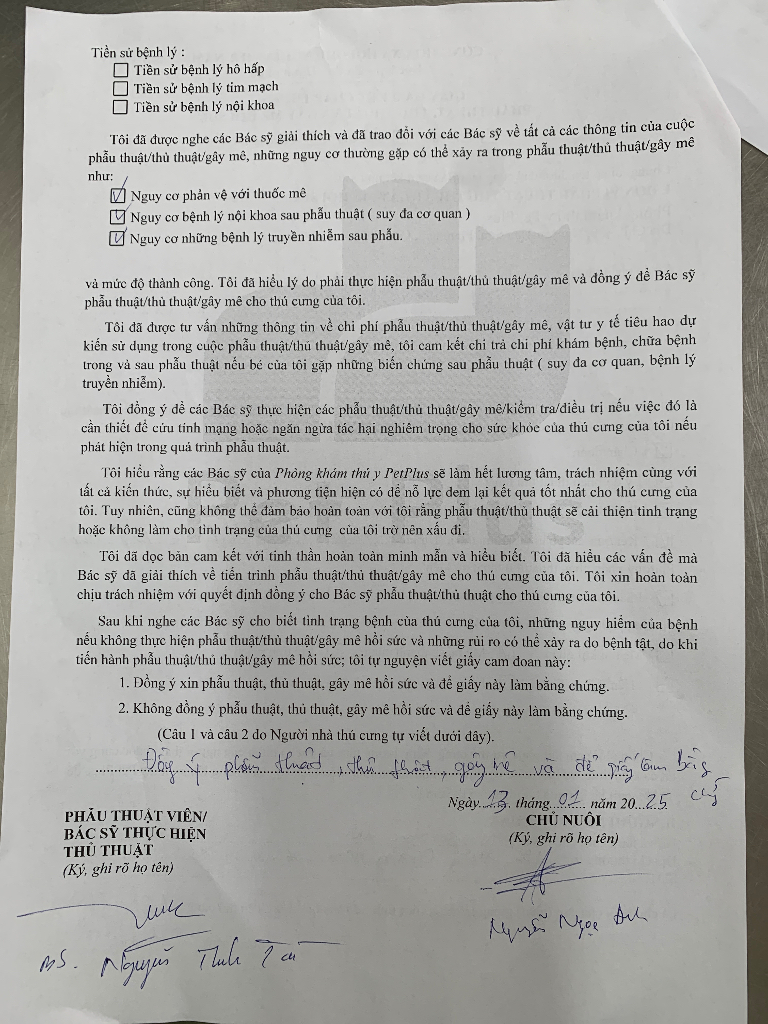 Tiền sử bệnh lý :
☐ Tiền sử bệnh lý hô hấp
☐ Tiền sử bệnh lý tim mạch
☐ Tiền sử bệnh lý nội khoa
Tôi đã được nghe các Bác sỹ giải thích và đã trao đổi với các Bác sỹ về tất cả các thông tin của cuộc
phẫu thuật/thủ thuật/gây mê, những nguy cơ thường gặp có thể xảy ra trong phẫu thuật/thủ thuật/gây mê
như:
☑ Nguy cơ phản vệ với thuốc mê
☑ Nguy cơ bệnh lý nội khoa sau phẫu thuật ( suy đa cơ quan )
☑ Nguy cơ những bệnh lý truyền nhiễm sau phẫu.
và mức độ thành công. Tôi đã hiểu lý do phải thực hiện phẫu thuật/thủ thuật/gây mê và đồng ý để Bác sỹ
phẫu thuật/thủ thuật/gây mê cho thú cưng của tôi.
Tôi đã được tư vấn những thông tin về chi phí phẫu thuật/thủ thuật/gây mê, vật tư y tế tiêu hao dự
kiến sử dụng trong cuộc phẫu thuật/thủ thuật/gây mê, tôi cam kết chi trả chi phí khám bệnh, chữa bệnh
trong và sau phẫu thuật nếu bé của tôi gặp những biến chứng sau phẫu thuật ( suy đa cơ quan, bệnh lý
truyền nhiễm).
Tôi đồng ý để các Bác sỹ thực hiện các phẫu thuật/thủ thuật/gây mê/kiểm tra/điều trị nếu việc đó là
cần thiết để cứu tính mạng hoặc ngăn ngừa tác hại nghiêm trọng cho sức khỏe của thú cưng của tôi nếu
phát hiện trong quá trình phẫu thuật.
Tôi hiểu rằng các Bác sỹ của Phòng khám thú y PetPlus sẽ làm hết lương tâm, trách nhiệm cùng với
tất cả kiến thức, sự hiểu biết và phương tiện hiện có để nỗ lực đem lại kết quả tốt nhất cho thú cưng của
tôi. Tuy nhiên, cũng không thể đảm bảo hoàn toàn với tôi rằng phẫu thuật/thủ thuật sẽ cải thiện tình trạng
hoặc không làm cho tình trạng của thú cưng của tôi trở nên xấu đi.
Tôi đã đọc bản cam kết với tinh thần hoàn toàn minh mẫn và hiểu biết. Tôi đã hiểu các vấn đề mà
Bác sỹ đã giải thích về tiến trình phẫu thuật/thủ thuật/gây mê cho thú cưng của tôi. Tôi xin hoàn toàn
chịu trách nhiệm với quyết định đồng ý cho Bác sỹ phẫu thuật/thủ thuật cho thú cưng của tôi.
Sau khi nghe các Bác sỹ cho biết tình trạng bệnh của thú cưng của tôi, những nguy hiểm của bệnh
nếu không thực hiện phẫu thuật/thủ thuật/gây mê hồi sức và những rủi ro có thể xảy ra do bệnh tật, do khi
tiến hành phẫu thuật/thủ thuật/gây mê hồi sức; tôi tự nguyện viết giấy cam đoan này:
1. Đồng ý xin phẫu thuật, thủ thuật, gây mê hồi sức và để giấy này làm bằng chứng.
2. Không đồng ý phẫu thuật, thủ thuật, gây mê hồi sức và để giấy này làm bằng chứng.
(Câu 1 và câu 2 do Người nhà thú cưng tự viết dưới đây).
Đồng ý phẫu thuật, thủ thuật, gây mê và để giấy làm bằng
chứng
Ngày 13 tháng 01 năm 2025
PHẪU THUẬT VIÊN/
BÁC SỸ THỰC HIỆN
THỦ THUẬT
(Ký, ghi rõ họ tên)
CHỦ NUÔI
(Ký, ghi rõ họ tên)
Nguyễn Ngọc Anh
BS. Nguyễn